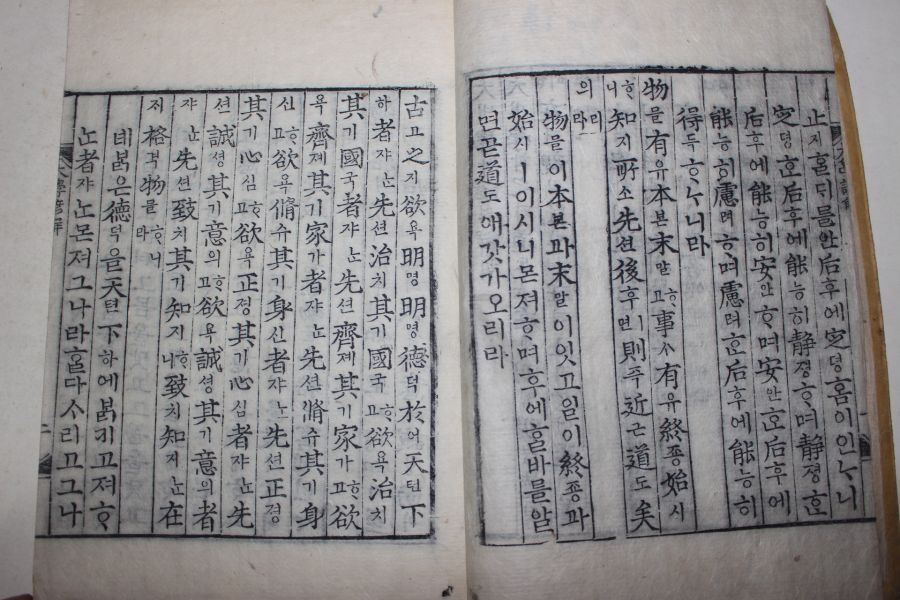 止지홀ᄃᆡ를안后후에定뎡홈이인ᄂᆞ니
定뎡ᄒᆞᆫ后후에能능히靜졍ᄒᆞ며靜졍ᄒᆞᆫ
后후에能능히安안ᄒᆞ며安안ᄒᆞᆫ后후에
能능히慮려ᄒᆞ며慮려ᄒᆞᆫ后후에能능히
得득ᄒᆞᄂᆞ니라
物믈有유本본末말ᄒᆞ고事ᄉᆞ有유終죵始시
ᄒᆞ니知지所소先션後후ㅣ면則즉近근道도矣
의리라
物믈이本본과末말이잇고일이終죵과
始시ㅣ이시니몬져ᄒᆞ며후에ᄒᆞᆯ바를알
면곧道도애갓가오리라
古고之지欲욕明명明명德덕於어天텬下
하者쟈ᄂᆞᆫ先션治치其기國국ᄒᆞ고欲욕治치
其기國국者쟈ᄂᆞᆫ先션齊졔其기家가ᄒᆞ고欲
욕齊졔其기家가者쟈ᄂᆞᆫ先션脩슈其기身
신ᄒᆞ고欲욕脩슈其기身신者쟈ᄂᆞᆫ先션正졍
其기心심ᄒᆞ고欲욕正졍其기心심者쟈ᄂᆞᆫ先
션誠셩其기意의ᄒᆞ고欲욕誠셩其기意의者
쟈ᄂᆞᆫ先션致치其기知지ᄒᆞ니致치知지ᄂᆞᆫ在
ᄌᆡ格격物믈ᄒᆞ니라
녜ᄇᆞᆰ은德덕을天텬下하에ᄇᆞᆰ기고져ᄒᆞ
ᄂᆞᆫ者쟈ᄂᆞᆫ몬져그나라ᄒᆞᆯ다ᄉᆞ리고그나